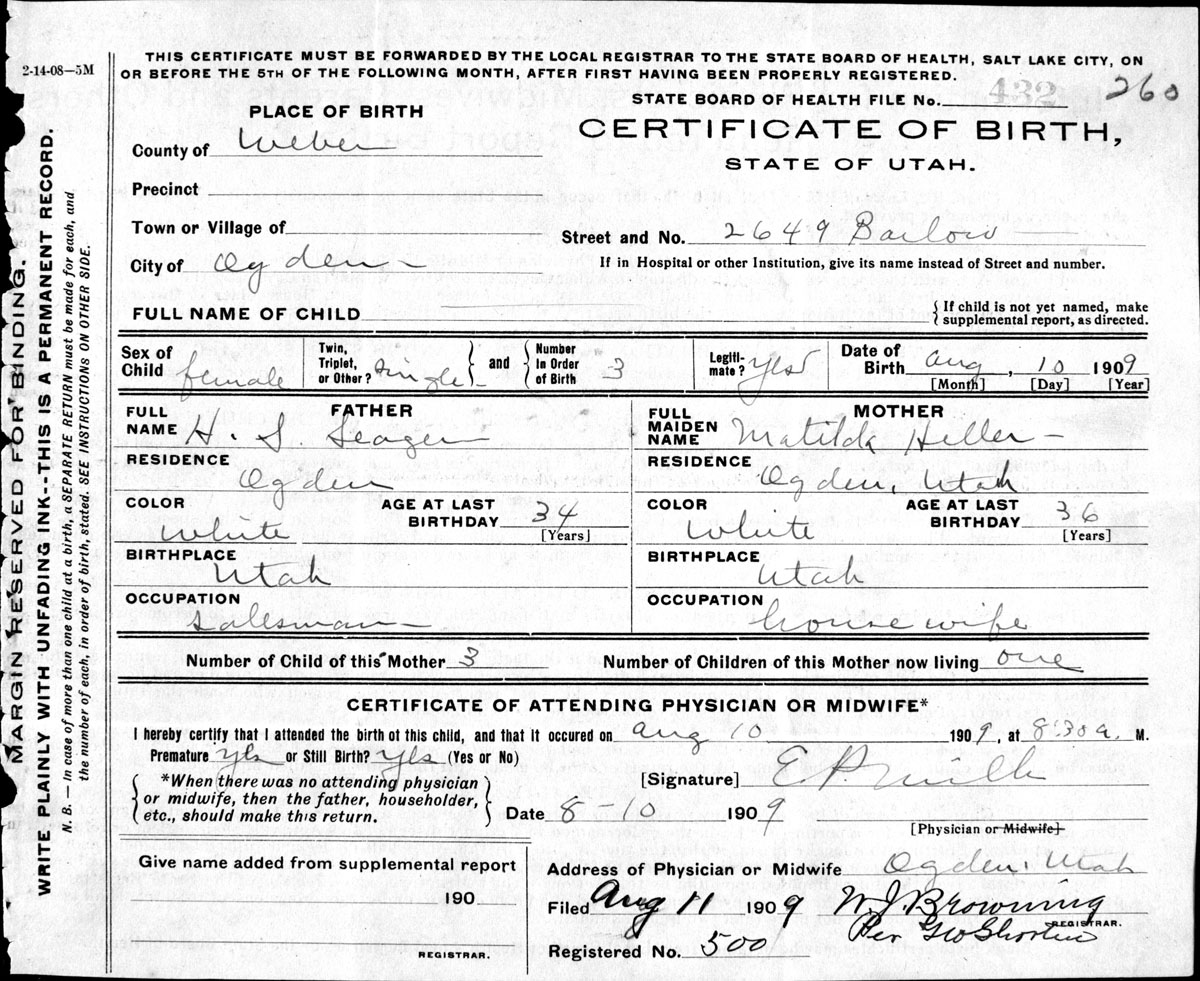 2-14-08—5M
THIS CERTIFICATE MUST BE FORWARDED BY THE LOCAL REGISTRAR TO THE STATE BOARD OF HEALTH, SALT LAKE CITY, ON
OR BEFORE THE 5TH OF THE FOLLOWING MONTH, AFTER FIRST HAVING BEEN PROPERLY REGISTERED.
STATE BOARD OF HEALTH FILE No. 432 260
PLACE OF BIRTH
CERTIFICATE OF BIRTH,
STATE OF UTAH.
County of Weber
Precinct
Town or Village of
Street and No. 2649 Barlow
City of Ogden
If in Hospital or other Institution, give its name instead of Street and number.
FULL NAME OF CHILD
{ If child is not yet named, make
supplemental report, as directed.
Sex of Child female
Twin, Triplet, or Other? single
and
Number In Order of Birth 3
Legiti-mate? yes
Date of Birth Aug, 10 1909
[Month] [Day] [Year]
FATHER
FULL NAME H. S. Seager
MOTHER
FULL MAIDEN NAME Matilda Heller
RESIDENCE Ogden
RESIDENCE Ogden, Utah
COLOR White
AGE AT LAST BIRTHDAY 34 [Years]
COLOR White
AGE AT LAST BIRTHDAY 36 [Years]
BIRTHPLACE Utah
BIRTHPLACE Utah
OCCUPATION Salesman
OCCUPATION housewife
Number of Child of this Mother 3
Number of Children of this Mother now living one
CERTIFICATE OF ATTENDING PHYSICIAN OR MIDWIFE*
I hereby certify that I attended the birth of this child, and that it occured on Aug 10 1909, at 8:30 a. M.
Premature yes or Still Birth? yes (Yes or No)
*When there was no attending physician
or midwife, then the father, householder,
etc., should make this return.
[Signature] E P Mills
Date 8-10 1909
[Physician or Midwife]
Give name added from supplemental report
190
REGISTRAR.
Address of Physician or Midwife Ogden, Utah
Filed Aug 11 1909
W. J. Browning
REGISTRAR.
Per G W
Registered No. 500
MARGIN RESERVED FOR BINDING.
WRITE PLAINLY WITH UNFADING INK---THIS IS A PERMANENT RECORD.
N. B. — In case of more than one child at a birth, a SEPARATE RETURN must be made for each, and
the number of each, in order of birth, stated. SEE INSTRUCTIONS ON OTHER SIDE.